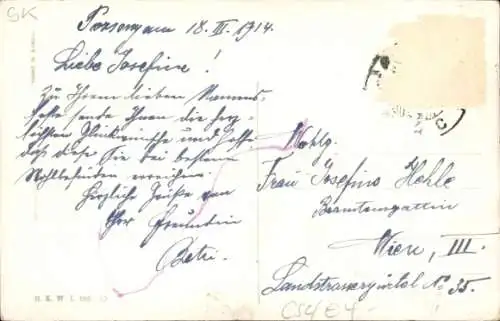 SK
Pozsony am 18. III. 1914.
Liebe Josefine!
Zu Ihrem lieben Namens-
feste sende Ihnen die herz-
lichsten Glückwünsche und hoffe
daß diese Sie bei bestem
Wohlbefinden erreichen.
Herzliche Grüße von
Ihrer Freundin
Betri.
Wohlg.
Frau Josefine Hehle
Beamtensgattin
Wien, III.
Landstrassergürtel No 35.
B. K. W. I.
CSY04